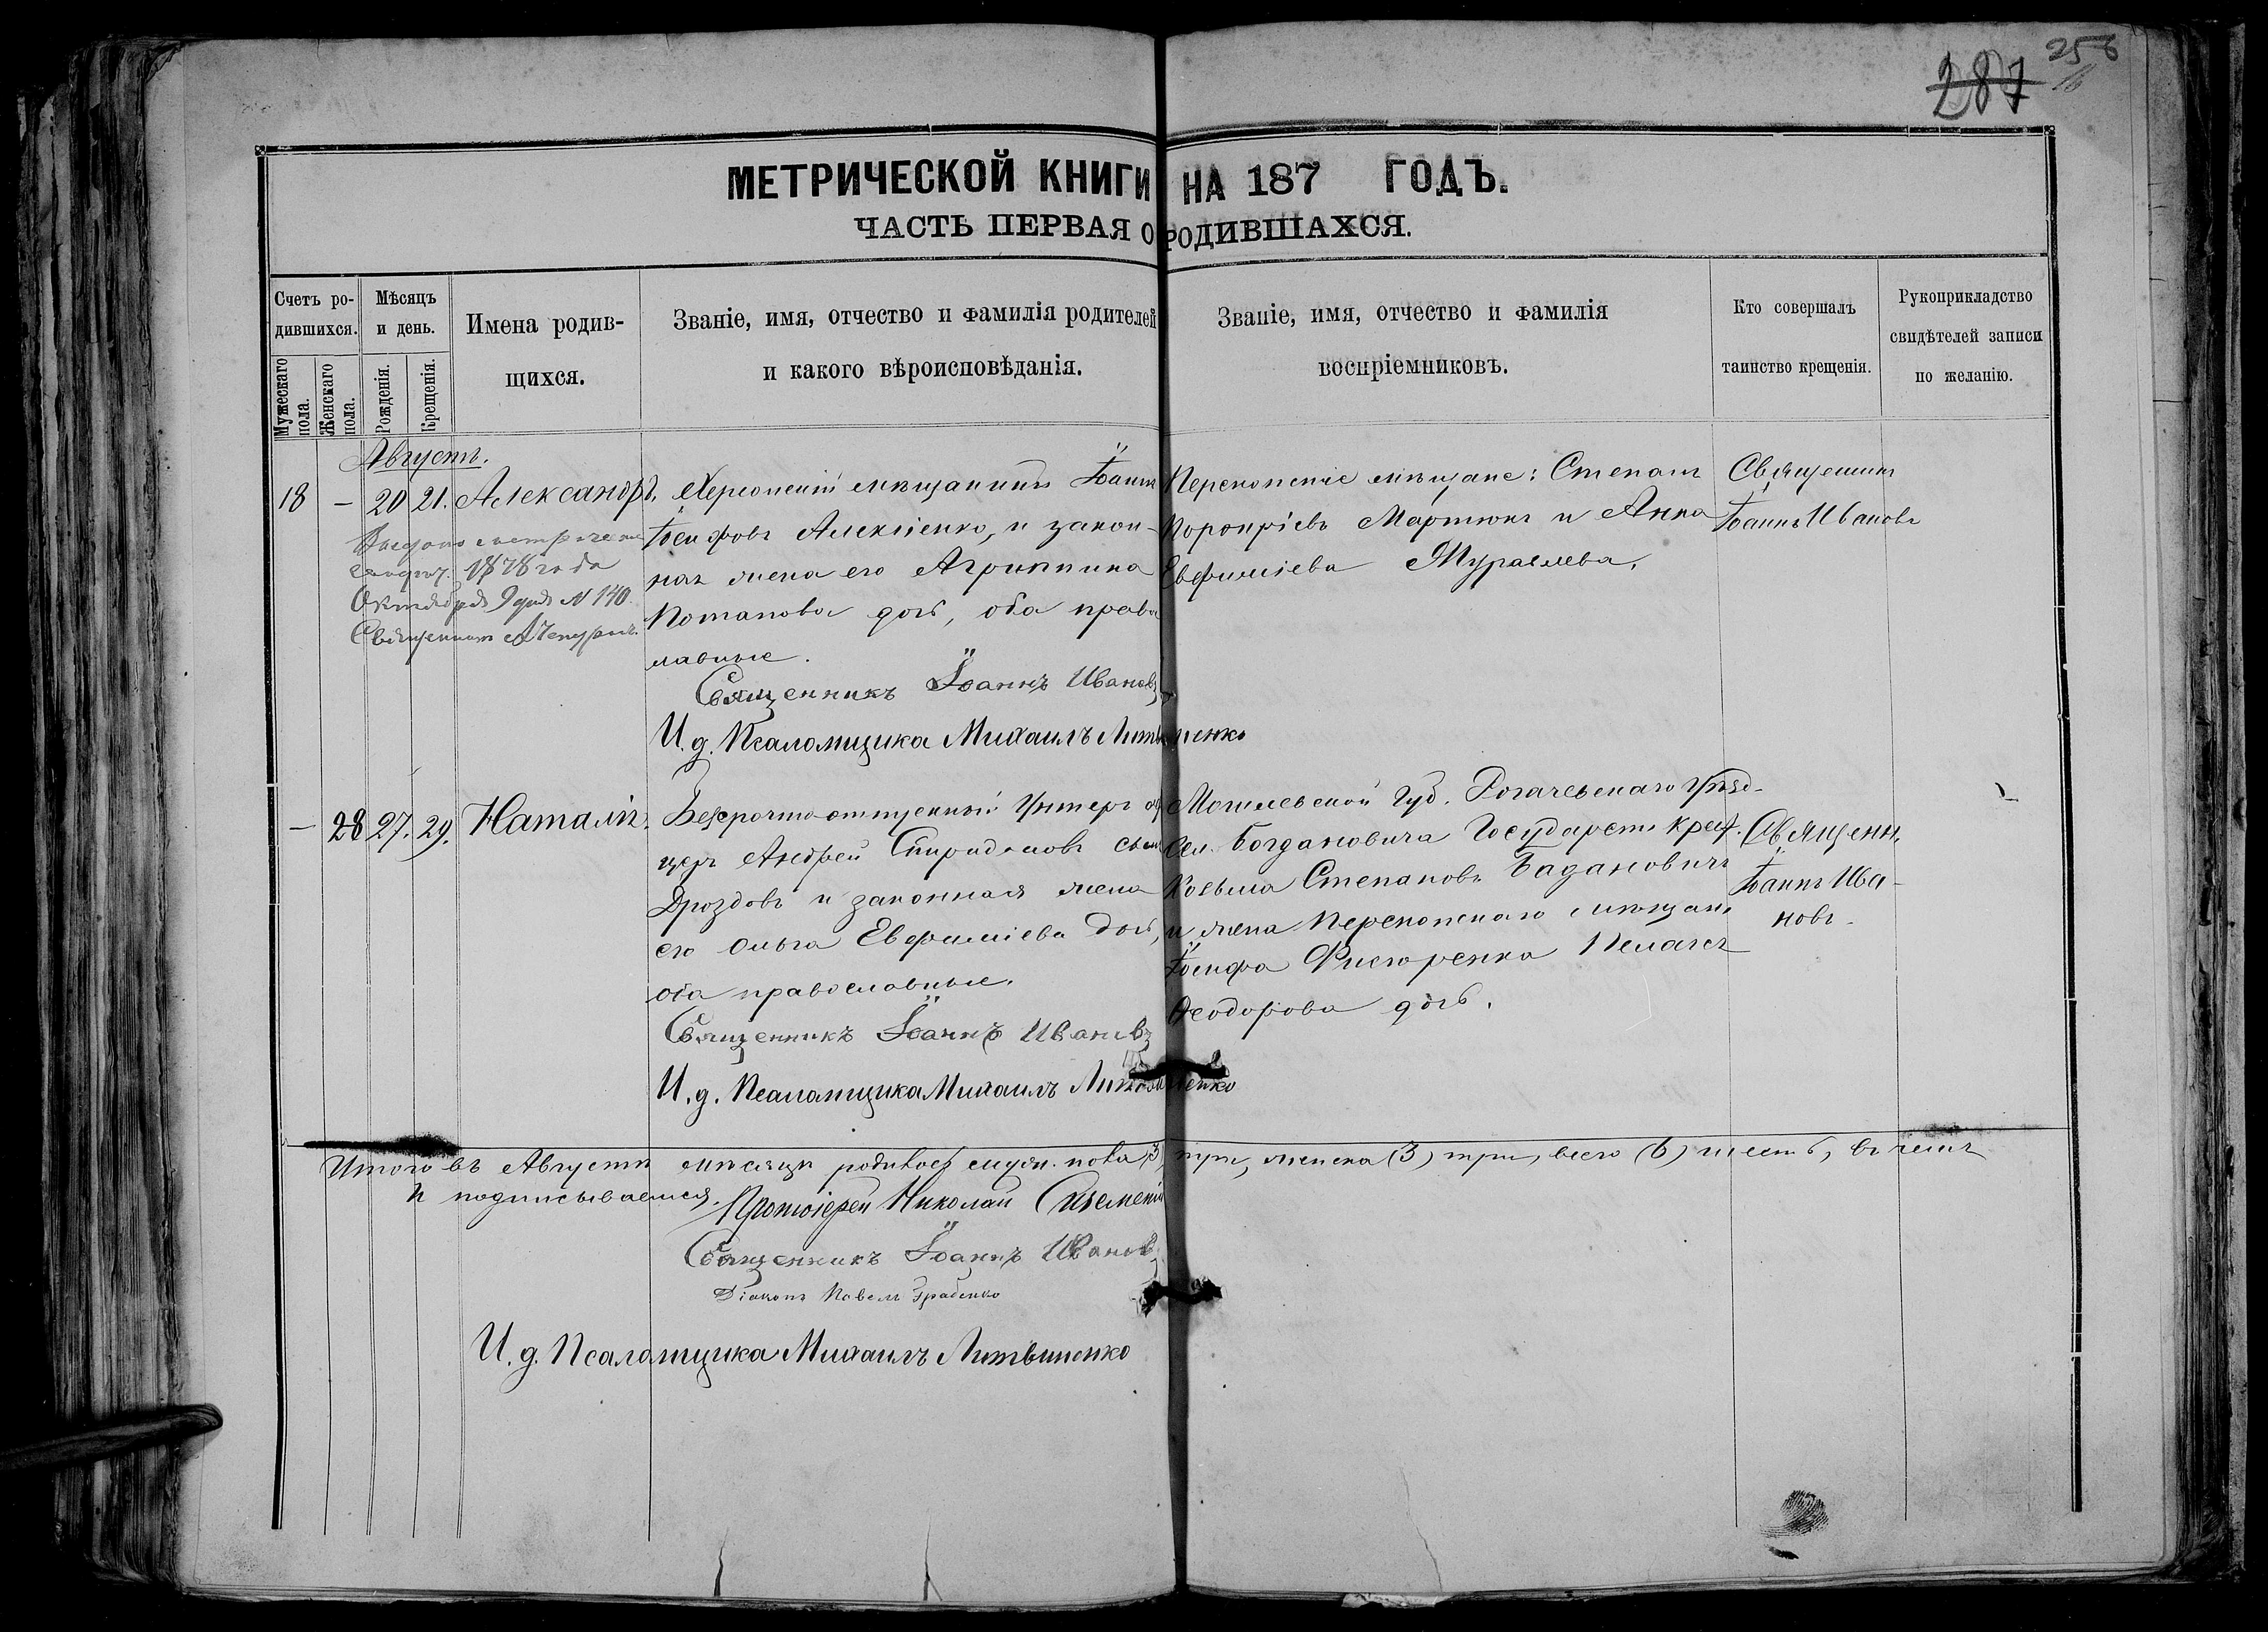 256
287
МЕТРИЧЕСКОЙ КНИГИ НА 187 ГОДЪ.
ЧАСТЬ ПЕРВАЯ О РОДИВШАХСЯ.
Счетъ ро-
дившихся.
Мужескаго пола.
Женскаго пола.
Мѣсяцъ
и день.
Рожденія.
Крещенія.
Имена родив-
щихся.
Званіе, имя, отчество и фамилія родителей
и какого вѣроисповѣданія.
Званіе, имя, отчество и фамилія
воспріемниковъ.
Кто совершалъ
таинство крещенія.
Рукоприкладство
свидѣтелей записи
по желанію.
Августъ.
18 — 20 21. Александръ
1878 года
Октября 9 дня № 140.
Священникъ
Херсонскій мѣщанинъ Іоаннъ
Іосифовъ Алексіенко, и закон-
ная жена его Агриппина
Потапова дочь, оба право
лавные.
Священникъ Іоаннъ Ивановъ
И. д. Псаломщика Михаилъ Литвиненко
Перекопскіе мѣщане: Степанъ
Мартюкъ и Анна
Евфиміева Журавлева.
Священникъ
Іоаннъ Ивановъ
— 28 27. 29. Наталія.
Безсрочно-отпускный Унтеръ оф
церъ Андрей Спиридоновъ сынъ
Дроздовъ и законная жена
его Ольга Евфиміева дочь,
оба православные.
Священникъ Іоаннъ Ивановъ
И. д. Псаломщика Михаилъ Литвиненко
Могилевской Губ. Рогачевскаго Уѣзд.
Сел. Богдановича Государств. крест.
Козьма Степановъ Бадановичъ
и жена Перекопскаго мѣщан
Іосифа Пелагея
Ѳеодорова дочь.
Священн.
Іоаннъ Ива-
новъ.
Итого въ Августѣ мѣсяцѣ родилось муж. пола (3) три, женска (3) три, всего (6) шесть, въ чемъ
и подписываемся. Протоіерей Николай
Священникъ Іоаннъ Ивановъ
Діаконъ Павелъ Граденко
И. д. Псаломщика Михаилъ Литвиненко